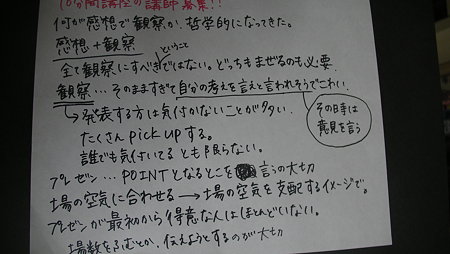 10分間講座の講師募集!!
何が感想で観察か、哲学的になってきた。
感想+観察 ということ
全て観察にすべきではない。どっちもまぜるのも必要
観察…そのまますぎて自分の考えを言えと言われそうでこわい。
→発表する方は気付かないことが多い。
その時は
意見を言う
たくさんpick upする。
誰でも気付いてるとも限らない。
プレゼン…POINTとなるとこを言うの大切
場の空気に合わせる→場の空気を支配するイメージで。
プレゼンが最初から得意な人はほとんどいない。
場数をふむとか、伝えようとするのが大切